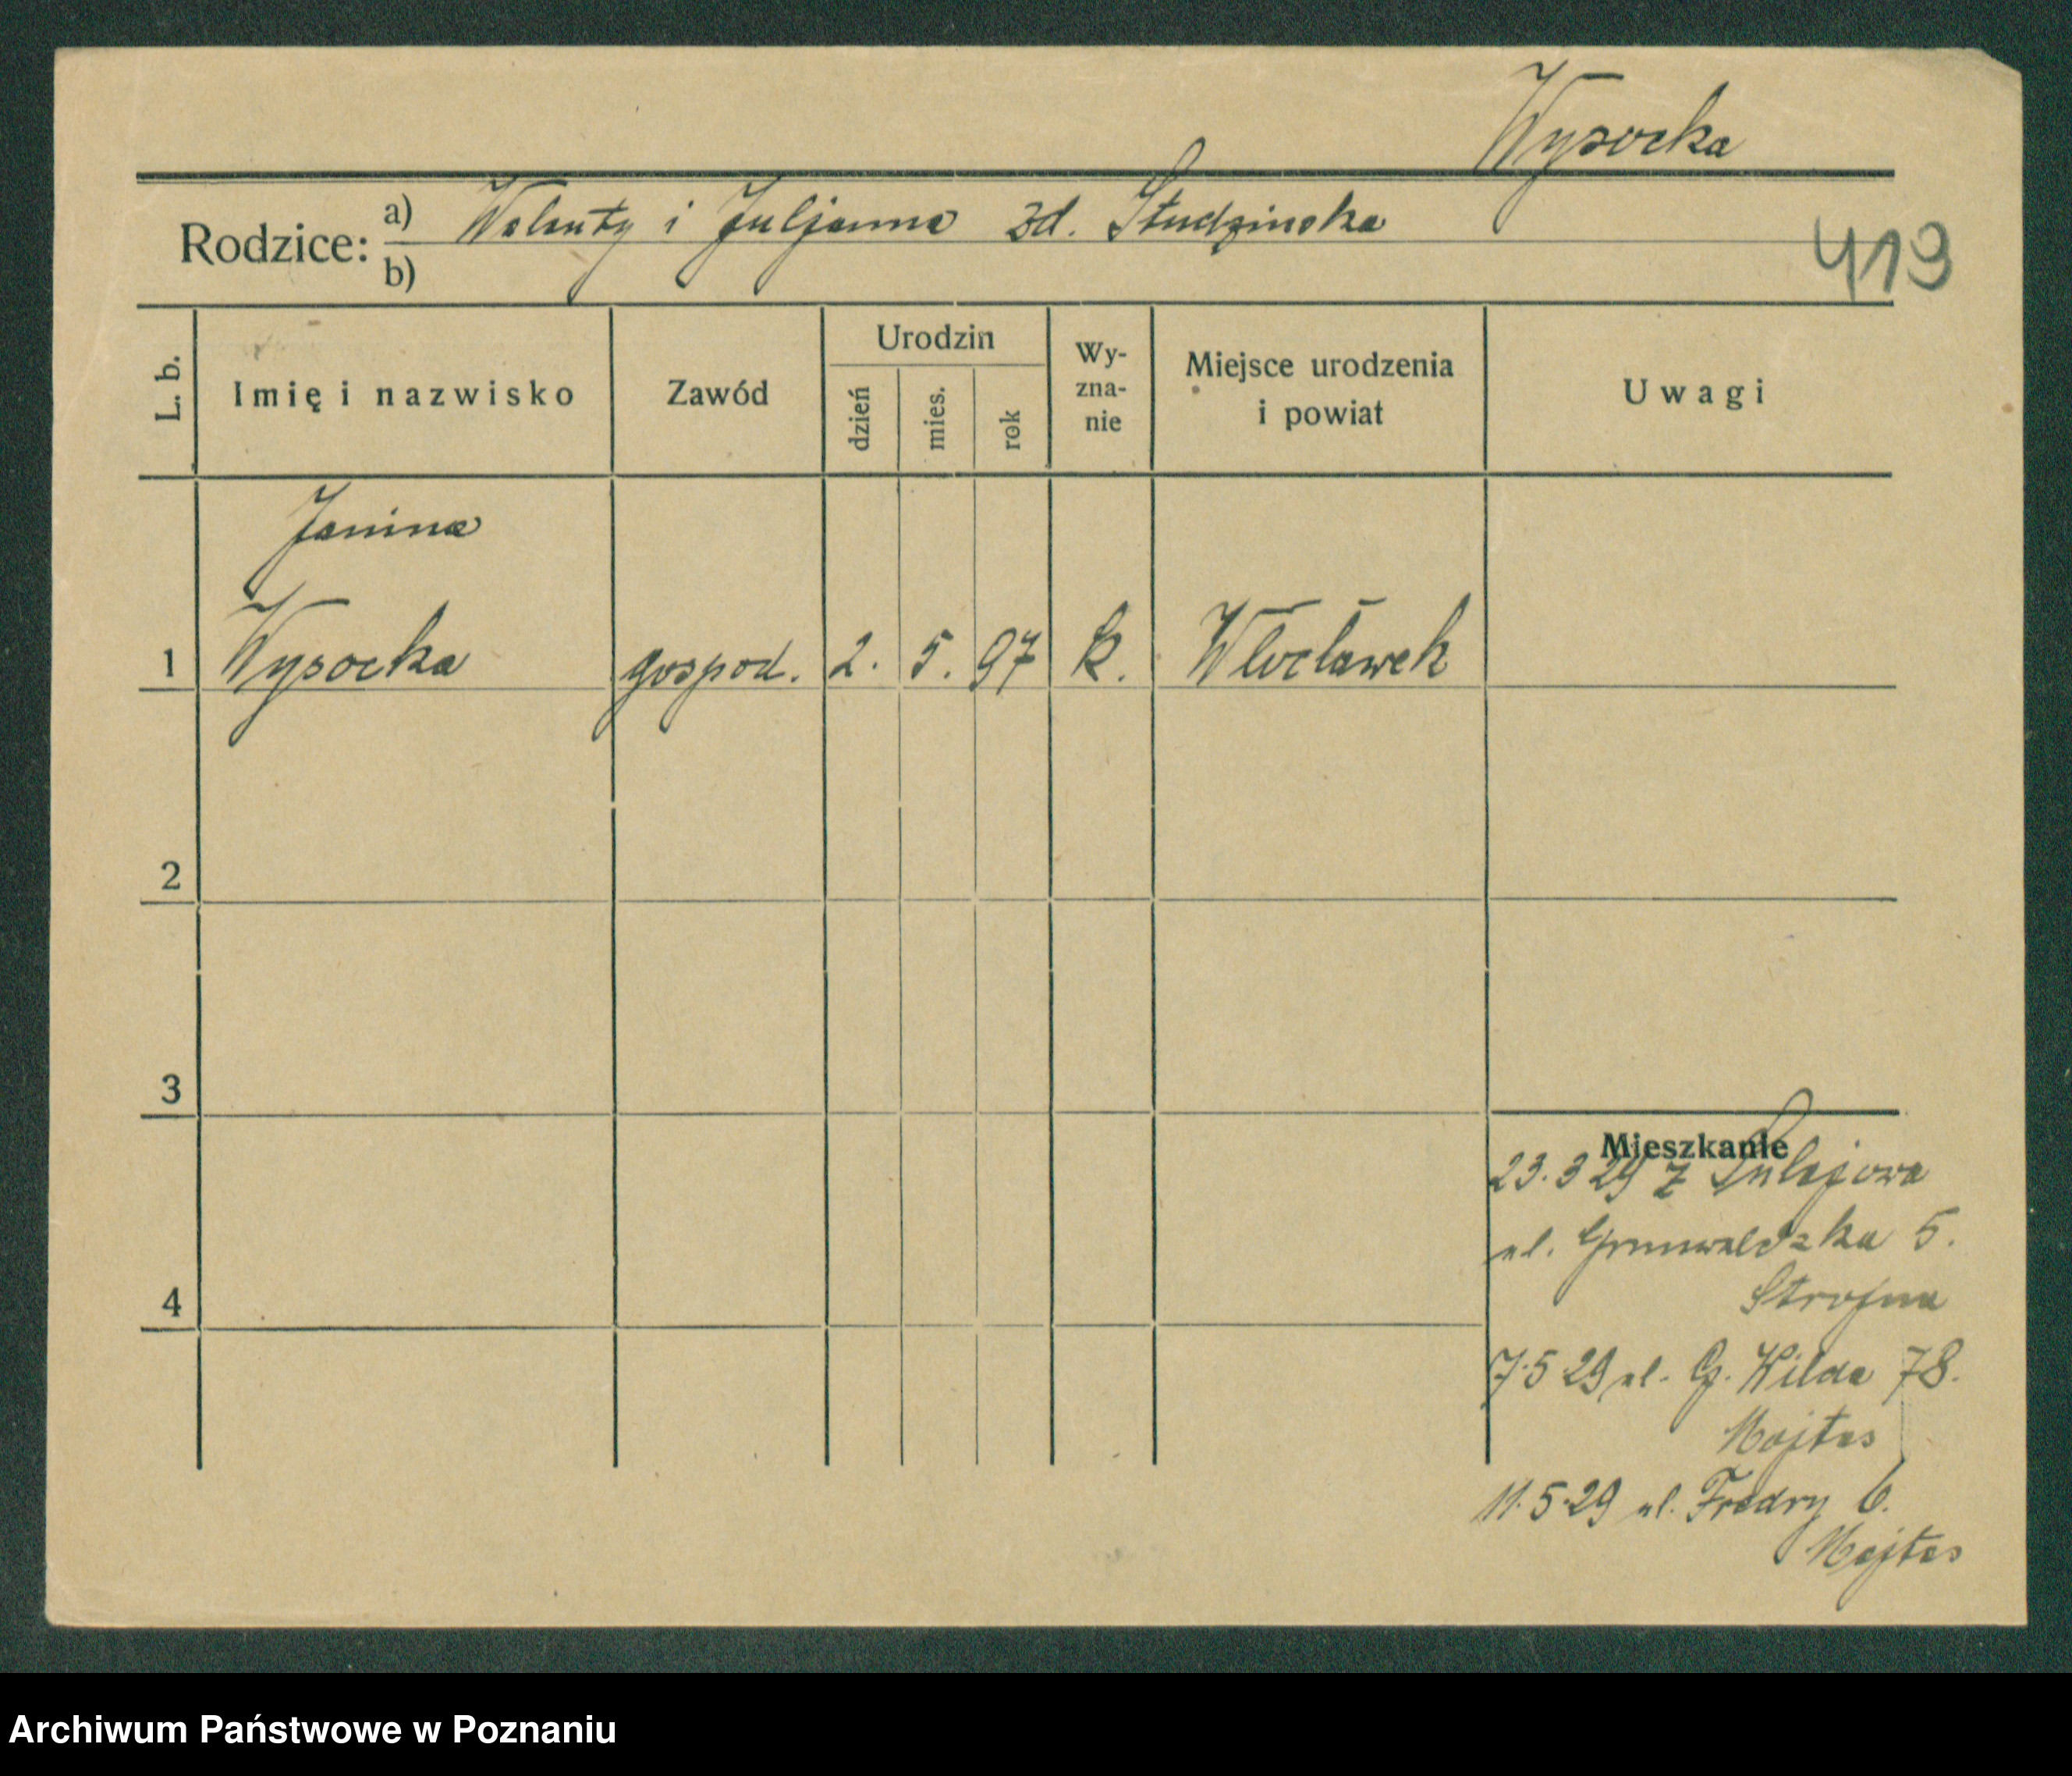 Wysocka
Rodzice: a) Walenty i Juljanna zd. Studzinska
b)
419
L. b.
Imię i nazwisko
Zawód
Urodzin
dzień
mies.
rok
Wy-
zna-
nie
Miejsce urodzenia
i powiat
Uwagi
Janina
1 Wysocka gospod. 2. 5. 97 k. Włocławek
2
3
4
Mieszkanie
23.3 29 z Sulejowa
ul. Grunwaldzka 5.
Strojna
7.5 29 ul. G. Wilda 78.
Mojtas
11.5.29 ul. Fredry 6.
Mojtas
Archiwum Państwowe w Poznaniu